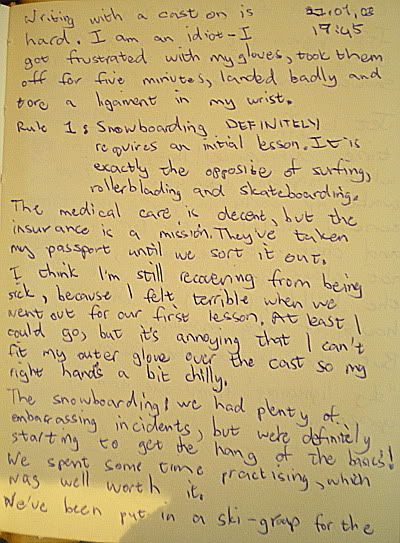 Writing with a cast on is 22.01.08
hard. I am an idiot - I 17:45
got frustrated with my gloves, took them
off for five minutes, landed badly and
tore a ligament in my wrist.
Rule 1: Snowboarding DEFINITELY
requires an initial lesson. It is
exactly the opposite of surfing,
rollerblading and skateboarding.
The medical care is decent, but the
insurance is a mission. They've taken
my passport until we sort it out.
I think I'm still recovering from being
sick, because I felt terrible when we
went out for our first lesson. At least I
could go, but it's annoying that I can't
fit my outer glove over the cast so my
right hand's a bit chilly.
The snowboarding: we had plenty of
embarassing incidents, but were definitely
starting to get the hang of the basics!
We spent some time practising, which
was well worth it.
We've been put in a ski-group for the